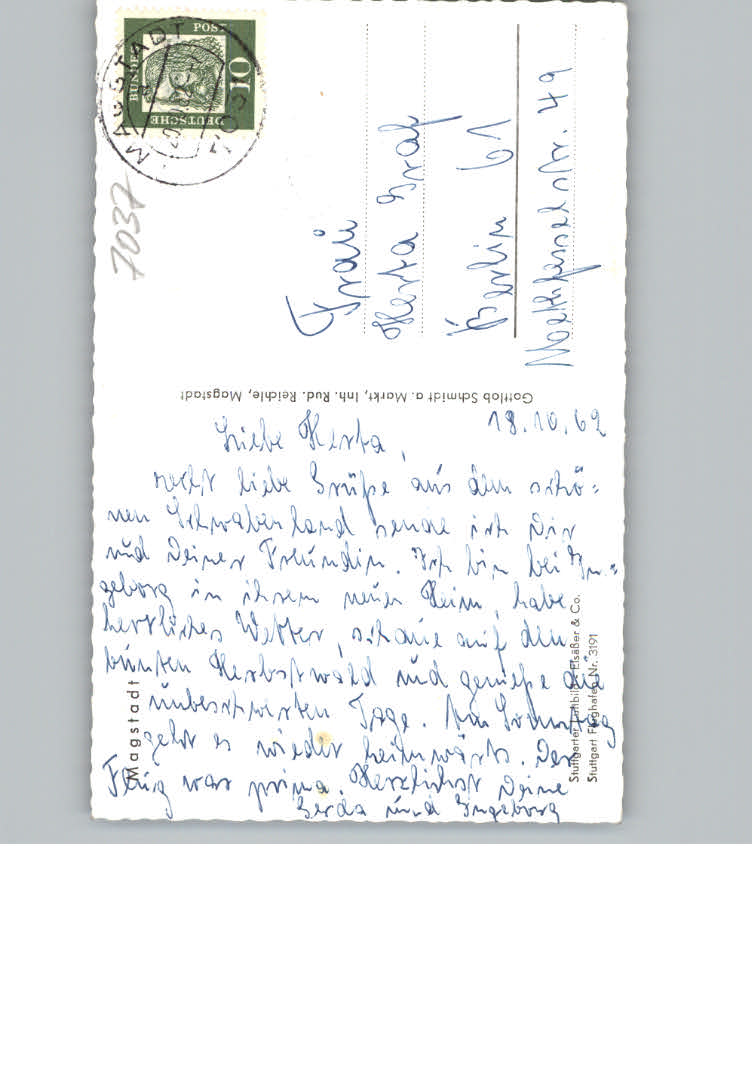 DEUTSCHE
BUNDESPOST
10
MAGSTADT
7037
Frau
Herta Graf
Berlin 61
49
Gottlob Schmidt a. Markt, Inh. Rud. Reichle, Magstadt
18.10.62
Liebe Herta,
recht liebe Grüße aus dem schö=
nen Schwabenland sende ich Dir
und Deiner Freundin. Ich bin bei In=
geborg in ihrem neuen Heim, habe
herrliches Wetter, schaue auf den
bunten Herbstwald und genieße die
unbeschwerten Tage. Am Sonntag
geht es wieder heimwärts. Der
Flug war prima. Herzlichst Deine
Gerda und Ingeborg
Magstadt
Stuttgarter Luftbild Elsäßer & Co.
Stuttgart Flughafen Nr. 3191